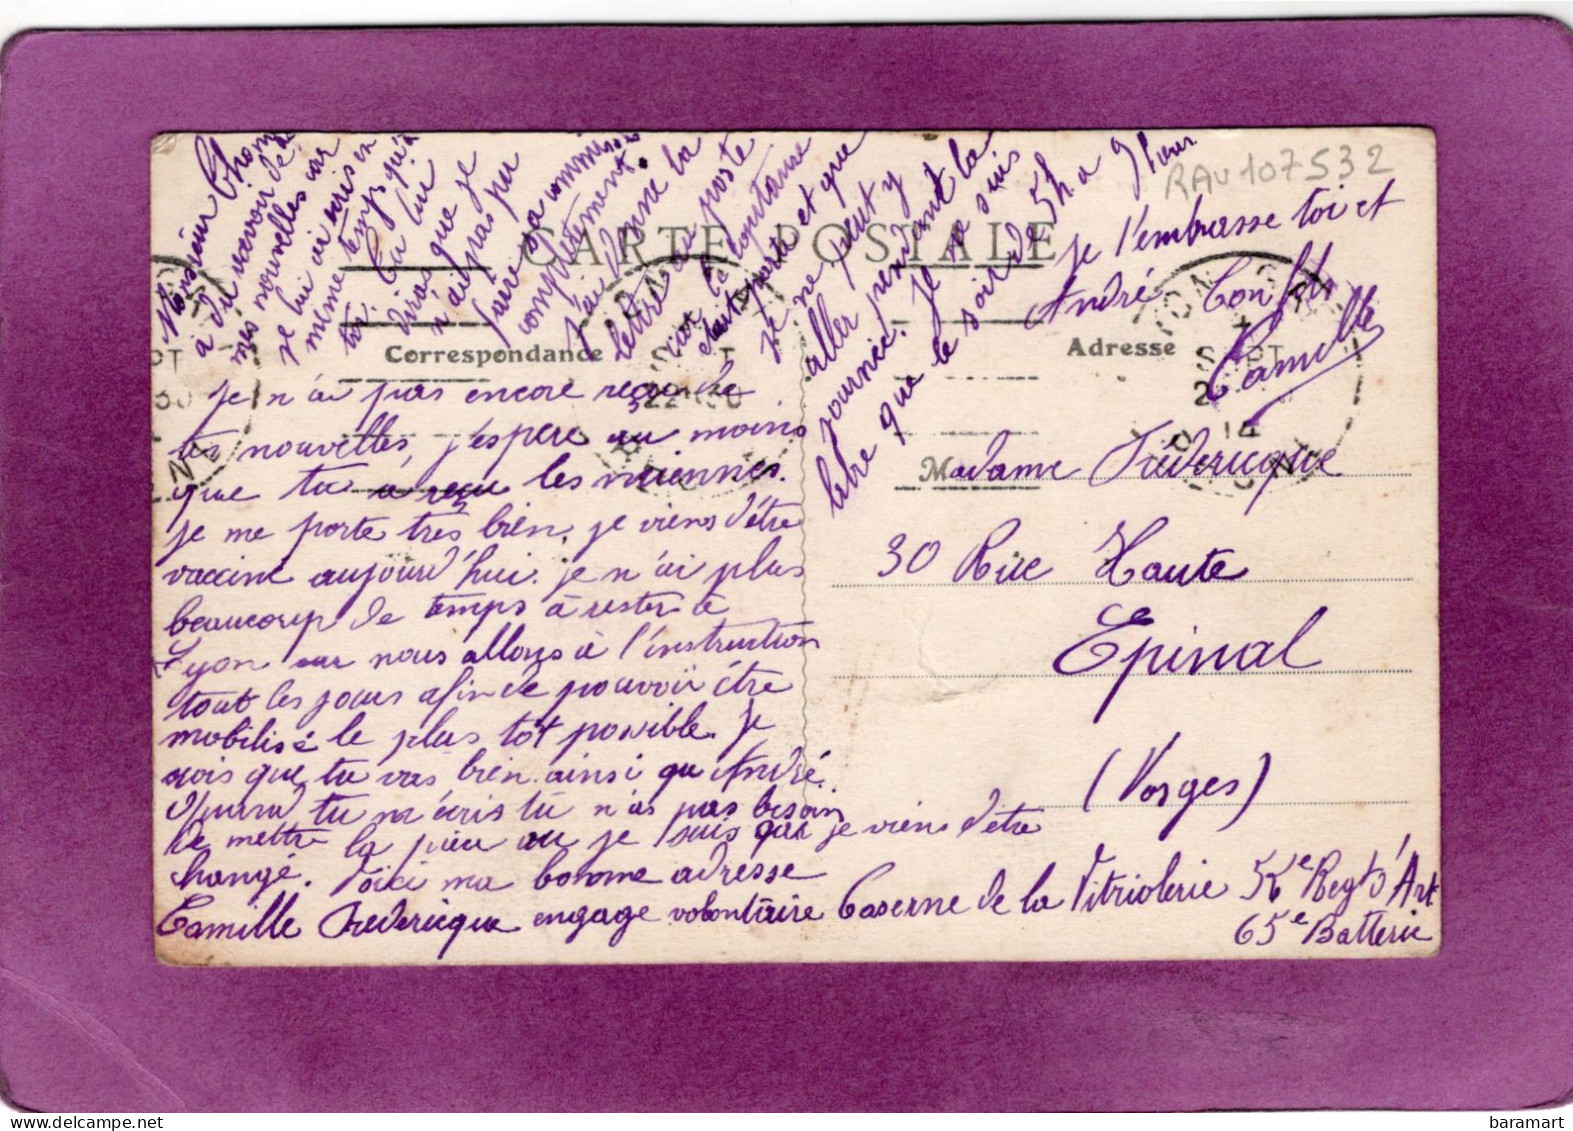 Monsieur Thom
à du recevoir de
mes nouvelles car
je lui ai écris en
même temps qu'à
toi. Tu lui
diras que je
n'ai pas pu
faire sa commission
complètement.
J'ai donné la
lettre au poste
car la
était porte et que
je ne peut y
aller pendant la
journée. Je ne suis
libre que le soir de 5h a 9 heures
Je t'embrasse toi et
André Ton fils
Camille
RAU107532
CARTE POSTALE
Correspondance
Adresse
je n'ai pas encore reçu de
tes nouvelles, j'espere au moins
que tu a reçu les miennes.
je me porte très bien, je viens d'être
vacciné aujourd'hui. je n'ai plus
beaucoup de temps à rester à
Lyon car nous allons à l'instruction
tout les jours afin de pouvoir être
mobilisé le plus tôt possible. Je
crois que tu vas bien ainsi qu'André.
Quand tu m'écris tu n'as pas besoin
de mettre la pièce ou je suis que je viens d'être
changé. Voici ma bonne adresse
Camille Fredericque engagé volontaire Caserne de la Vitriolerie 54e Regt d'Art
65e Batterie
Madame Frédericque
30 Rue Haute
Epinal
(Vosges)
SEPT
14
baramart
www.delcampe.net